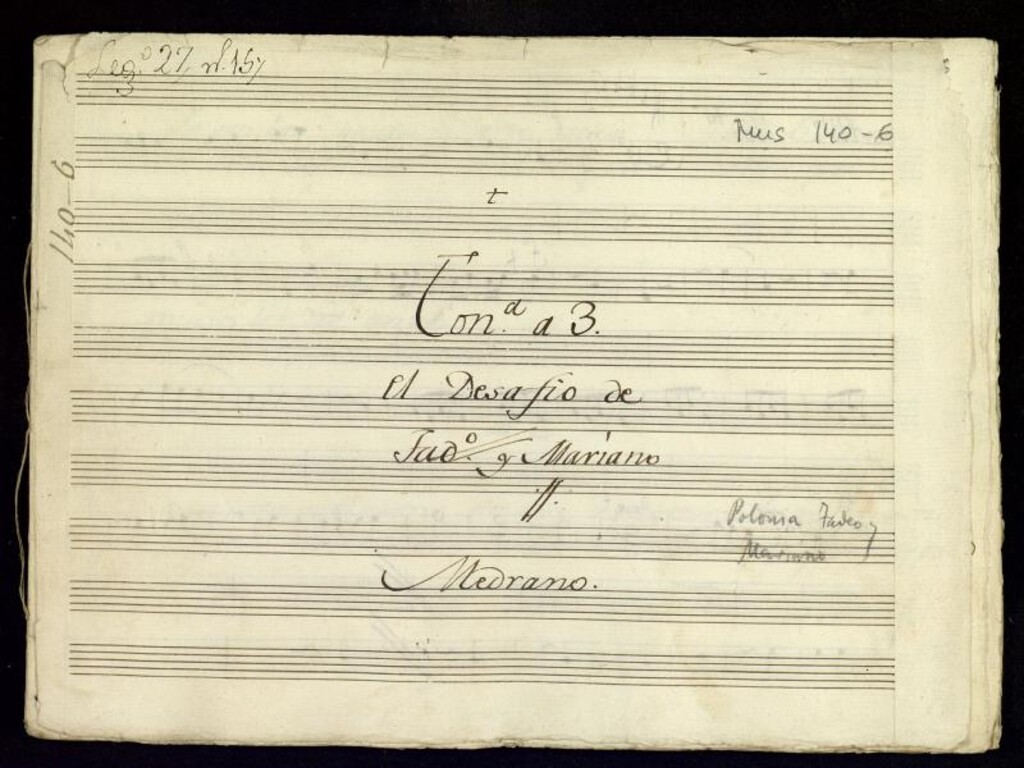 Leg.º 27, n.15,
3
Mus 140-6
140-6
t
Ton.ª a 3.
El Desafio de
Tad.º y Mariano
Polonia Tadeo y
Mariano
Medrano.